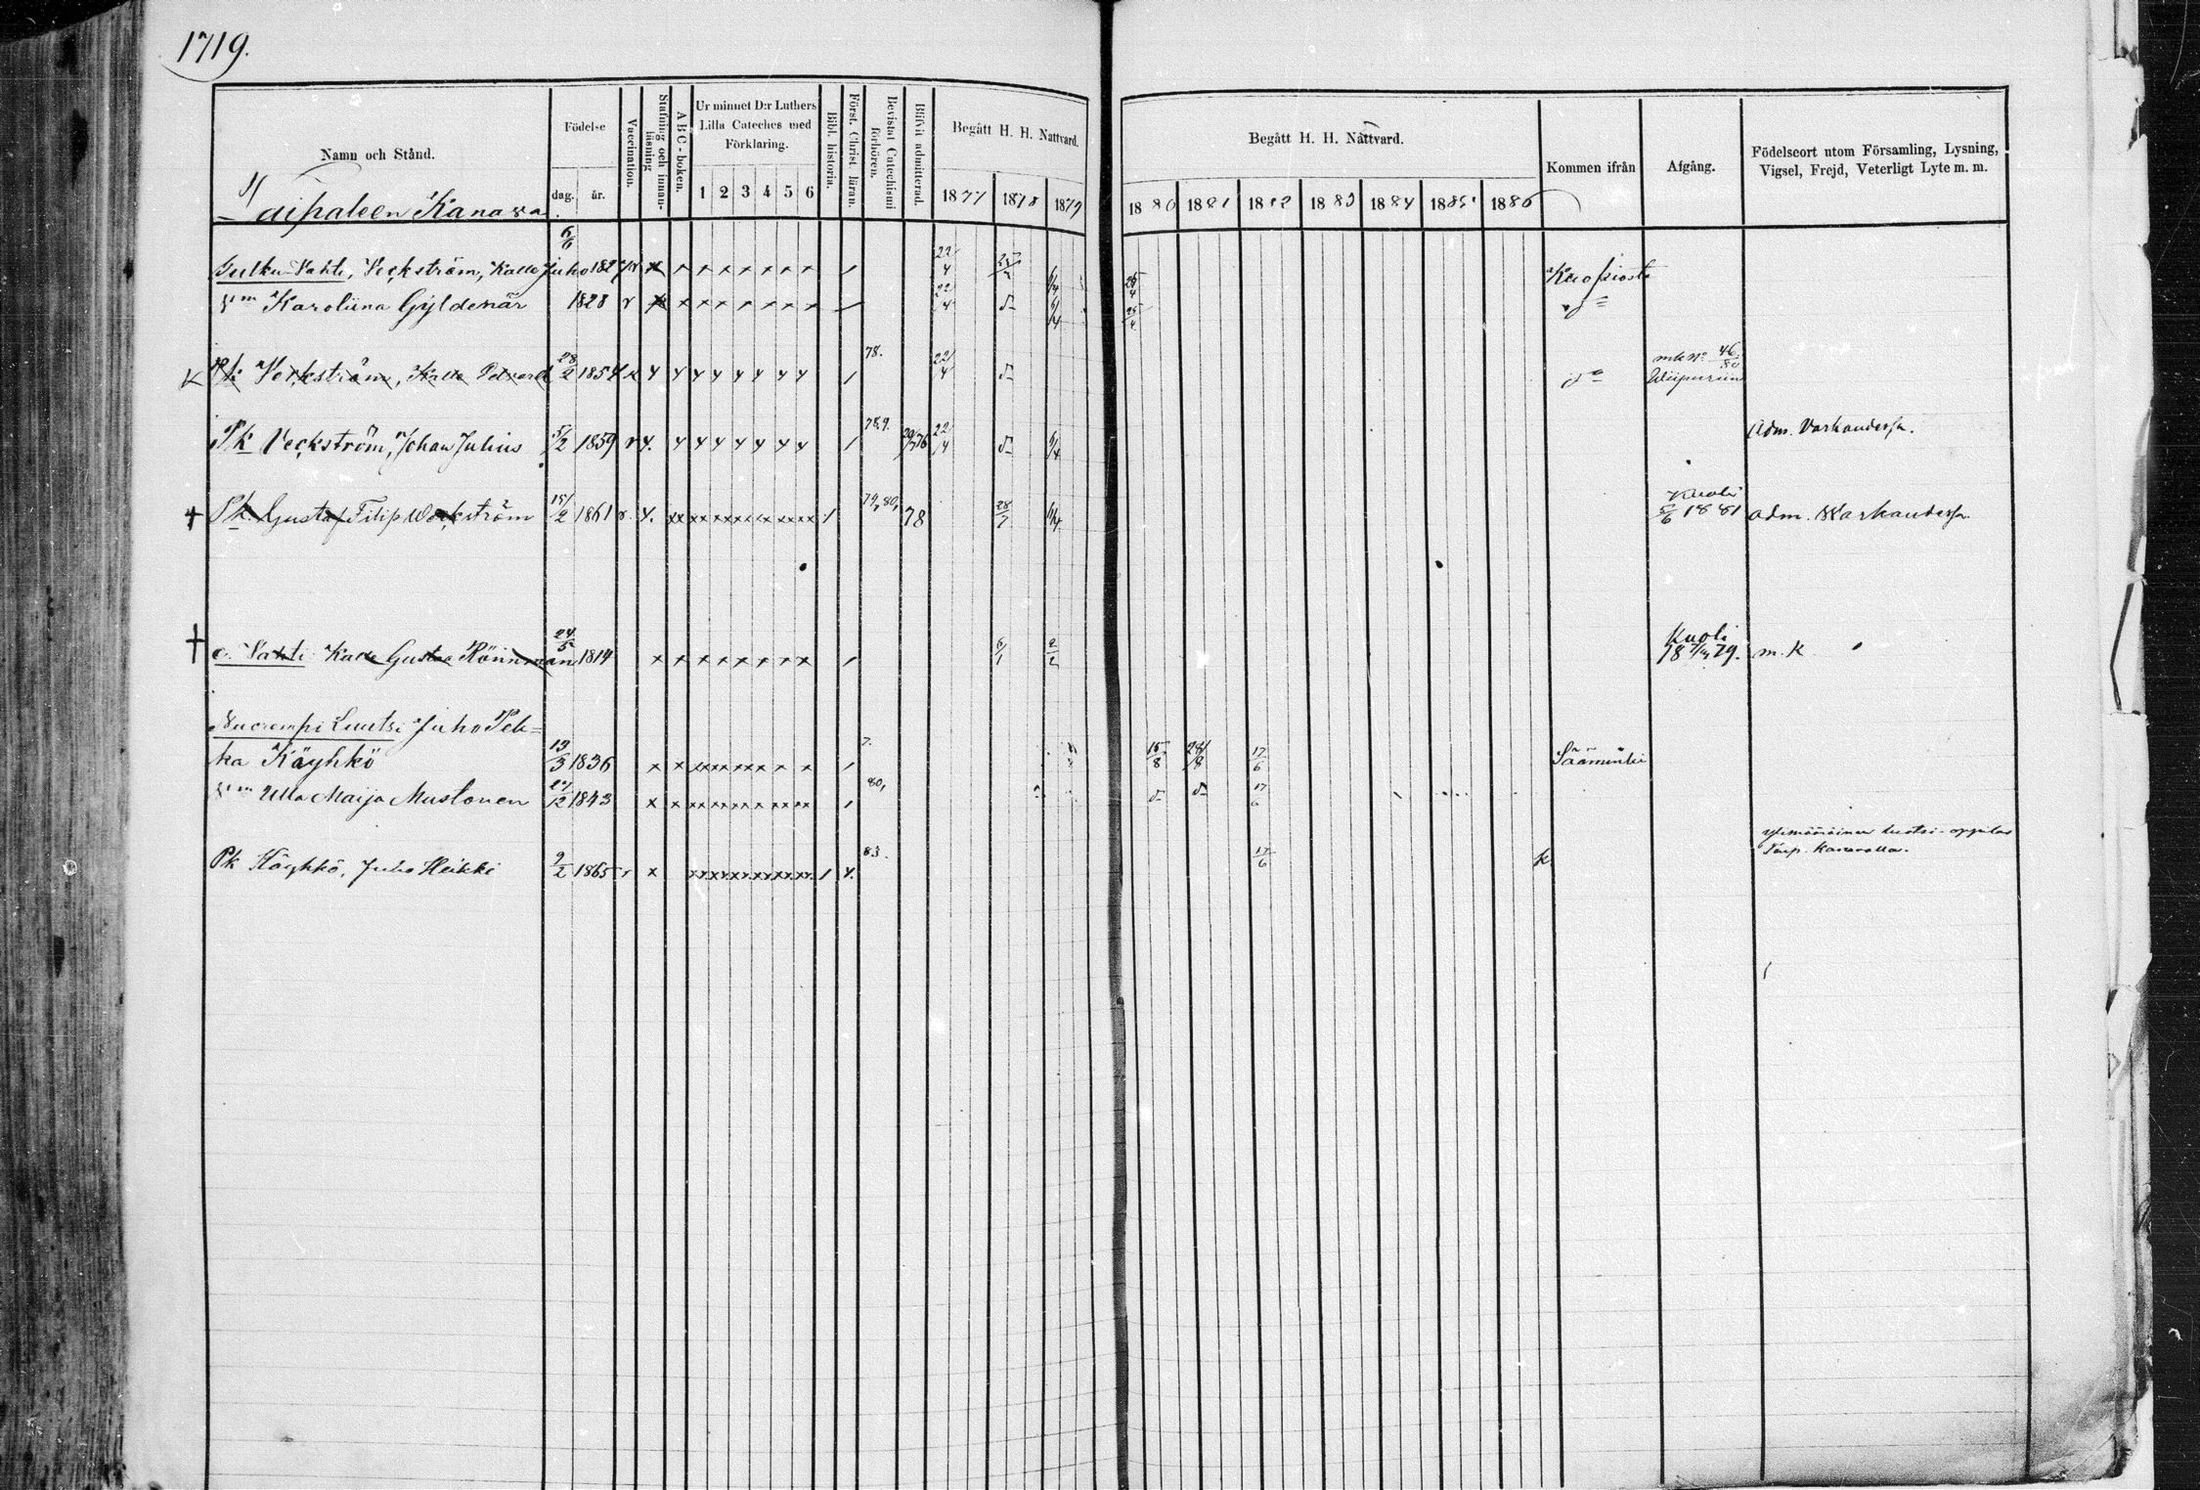 1719.
Namn och Stånd.
Taipaleen Kanava
Födelse
dag.
år.
Vaccination.
Stafning och innanläsning
A B C-boken.
Ur minnet D:r Luthers Lilla Cateches med Förklaring.
1 2 3 4 5 6
Bibl. historia.
Först. Christ läran.
Bevistat Catechismi förhören.
Blifvit admitterad.
Begått H. H. Nattvard.
1877 1878 1879
Begått H. H. Nattvard.
1880 1881 1882 1883 1884 1885 1886
Kommen ifrån
Afgång.
Födelseort utom Församling, Lysning, Vigsel, Frejd, Veterligt Lyte m. m.
6/6
Sulku-Vahti, Veckström, Kalle Juho 182 22/4 6/4 25/4 Kuopiosta
Vm Karoliina Gyldenär 1828 r 22/4 d- 6/4 25/4 do
K Pk Veckström, Kalle Edvard 28/2 1854 78. 22/4 d- do mk No 46/80 Wiipuriin
Pk Veckström, Johan Julius 5/2 1859 r 4. 78,9. 76 22/4 d- 6/4 Adm. Varkaudessa.
+ Pk. Gustaf Filip Weckström 15/2 1861 r. 4. 79,80, 78 28/7 6/4 Kuoli 5/6 1881 adm. Warkaudessa.
+ e. Vahti Kalle Gustaa Rönnman 24/5 1814 6/1 2/2 Kuoli 18 79. m. K
Nuorempi Luutsi Juho Pek=
ka Käyhkö 13/3 1836 7. 15/8 28/8 17/6 Sääminki
Vm Ulla Maija Mustonen 27/12 1843 80, d- d- 17/6
Pk Käyhkö, Juho Heikki 9/2 1865 r 83. 17/6 k ylimääräinen luotsi-oppilas
Taip. kanavalla.